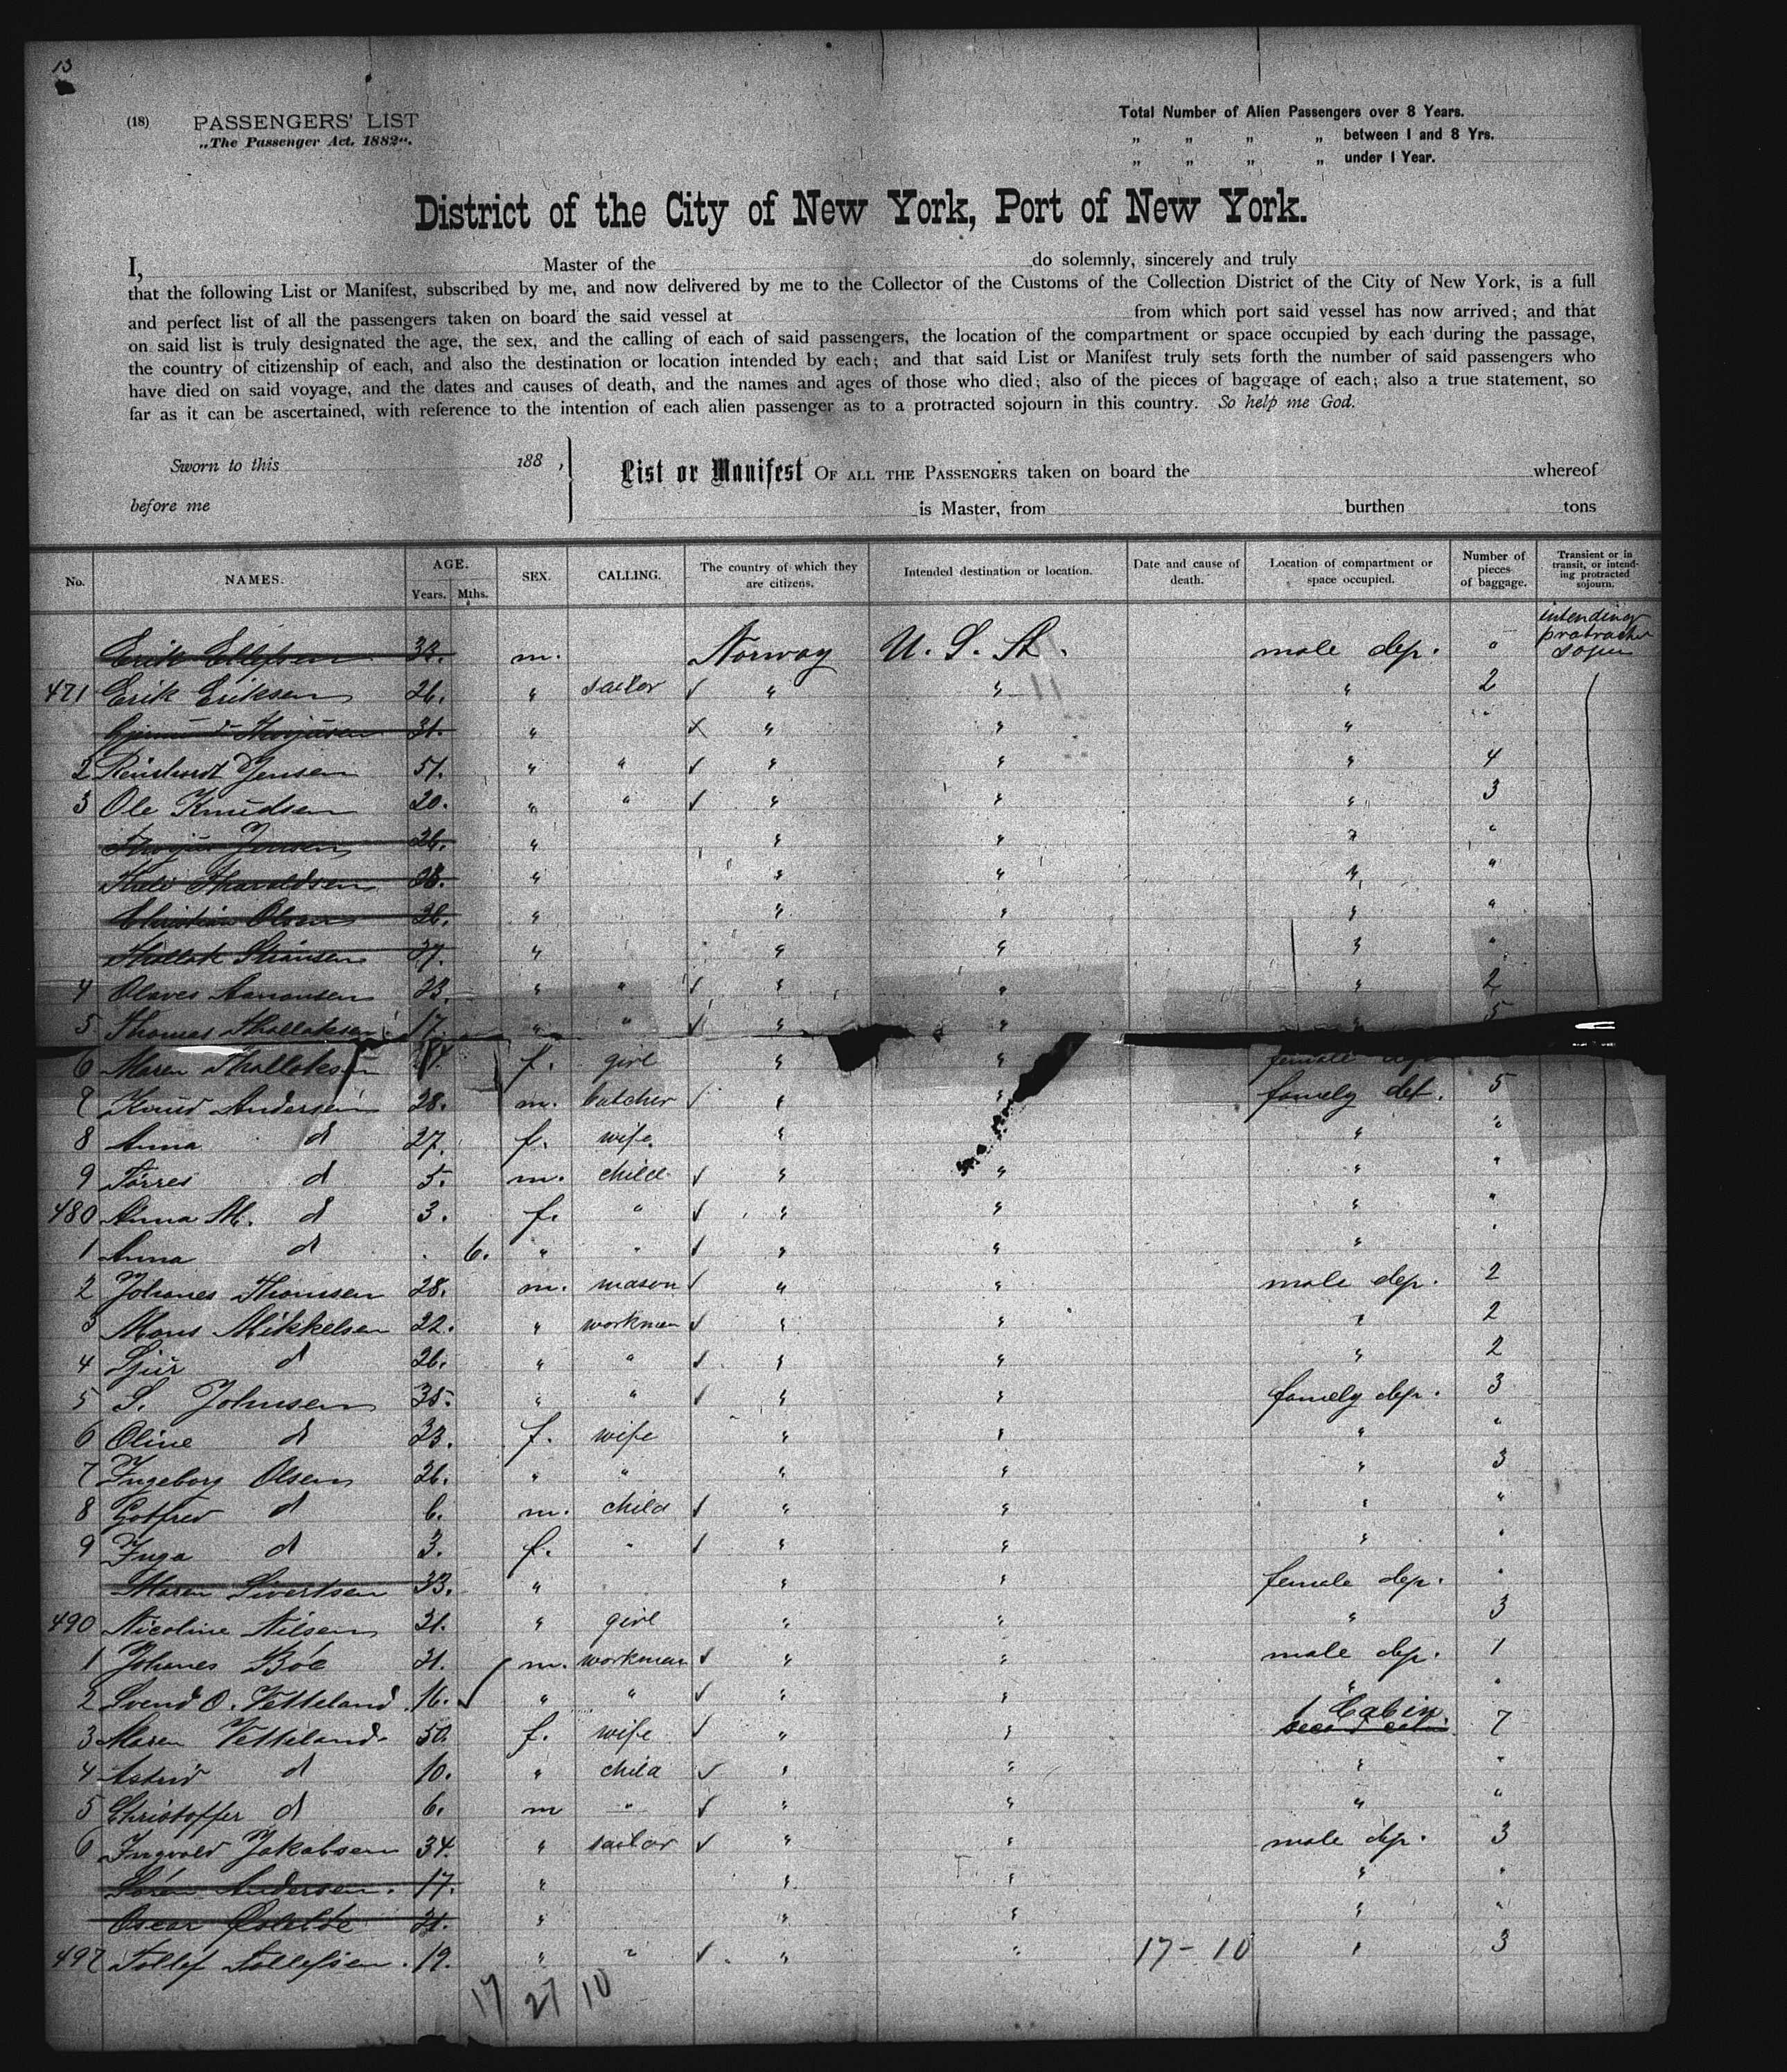 13
(18) PASSENGERS' LIST
„The Passenger Act, 1882“.
Total Number of Alien Passengers over 8 Years.
„ „ „ „ between 1 and 8 Yrs.
„ „ „ „ under 1 Year.
District of the City of New York, Port of New York.
I, Master of the do solemnly, sincerely and truly
that the following List or Manifest, subscribed by me, and now delivered by me to the Collector of the Customs of the Collection District of the City of New York, is a full
and perfect list of all the passengers taken on board the said vessel at from which port said vessel has now arrived; and that
on said list is truly designated the age, the sex, and the calling of each of said passengers, the location of the compartment or space occupied by each during the passage,
the country of citizenship of each, and also the destination or location intended by each; and that said List or Manifest truly sets forth the number of said passengers who
have died on said voyage, and the dates and causes of death, and the names and ages of those who died; also of the pieces of baggage of each; also a true statement, so
far as it can be ascertained, with reference to the intention of each alien passenger as to a protracted sojourn in this country. So help me God.
Sworn to this 188 ,
before me
List or Manifest OF ALL THE PASSENGERS taken on board the whereof
is Master, from burthen tons
No. NAMES. AGE. Years. Mths. SEX. CALLING. The country of which they are citizens. Intended destination or location. Date and cause of death. Location of compartment or space occupied. Number of pieces of baggage. Transient or in transit, or intending protracted sojourn.
Erik Ellefsen 32. m. Norway U. S. A. male dep. " intending
471 Erik Eriksen 26. " sailor " " " 2
31. " " " "
2 Reinhardt Jensen 51. " " " " " 4
3 Ole Knudsen 20. " " " " " 3
Jensen 26. " " " " "
Haraldsen 28. " " " " "
Christian Olsen 26. " " " " "
37. " " " " "
4 Olaves Aanonsen 23. " " " " " 2
5 Thomas Thalleksen 17. " " " " " 5
6 Maren Thalleksen f. girl " " female dep
7 Knud Andersen 28. m. butcher " " famely det. 5
8 Anna d 27. f. wife. " " "
9 Torres d 5. m. child " " " "
480 Anna M. d 3. f. " " " " "
1 Anna d 6. " " " " "
2 Johanes Thomsen 28. m. mason " " male dep. 2
3 Mons Mikkelsen 22. " workman " " " 2
4 Sjur d 26. " " " " " 2
5 S. Johnsen 35. " " " " famely dep. 3
6 Oline d 23. f. wife " " " "
7 Ingeborg Olsen 26. " " " " " 3
8 Gotfred d 6. m. child " " " "
9 Inga d 3. f. " " " " "
Maren Sivertsen 33. " " " female dep. "
490 Nicoline Nilsen 21. " girl " " " 3
1 Johanes Böe 21. m. workman " " male dep. 1
2 Svend O. Vetteland 16. " " " " " "
3 Maren Vetteland 50. f. wife " " 1 Cabin. 7
4 Astrid d 10. " child " " " "
5 Christoffer d 6. m " " " " "
6 Ingvald Jakobsen 34. " sailor " " male dep. 3
Sören Andersen. 17. " " " " "
Oscar 21. " " " " "
497 Tollef Tollefsen. 19. " " " " 17-10 " 3
17 27 10